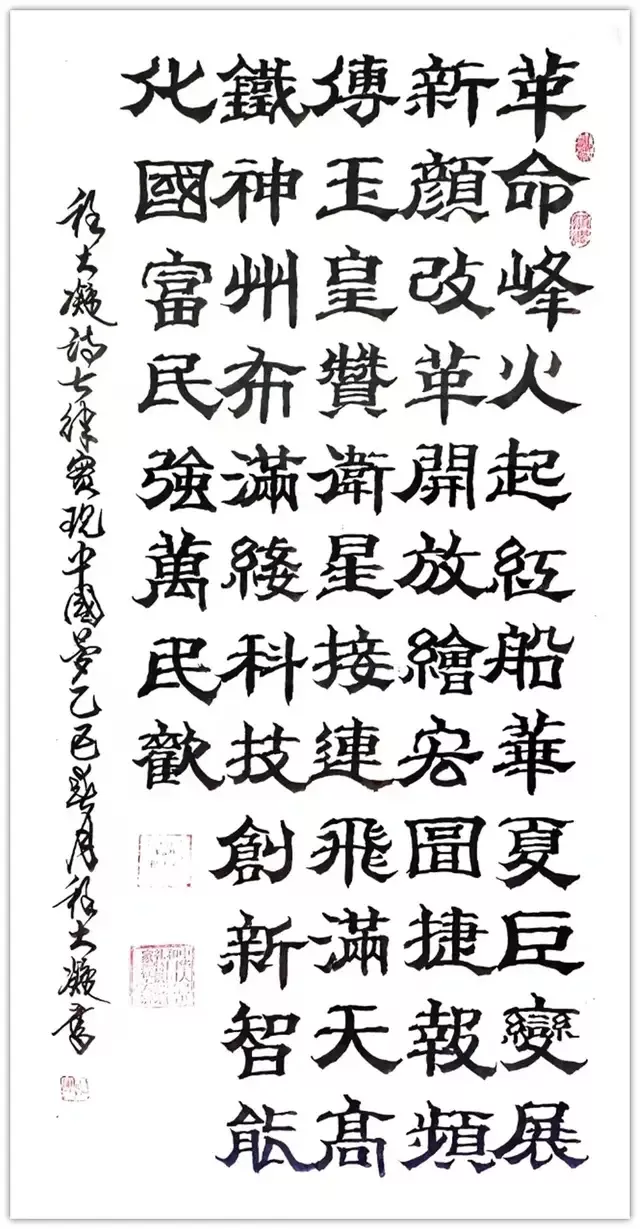 革命峰火起紅船華夏巨變展
新顏改革開放繪宏圖捷報頻
傳玉皇贊衛星接連飛滿天高
鐵神州布滿綫科技創新智能
化國富民強萬民歡
程大凝詩七律實現中國夢乙巳春月程大凝書